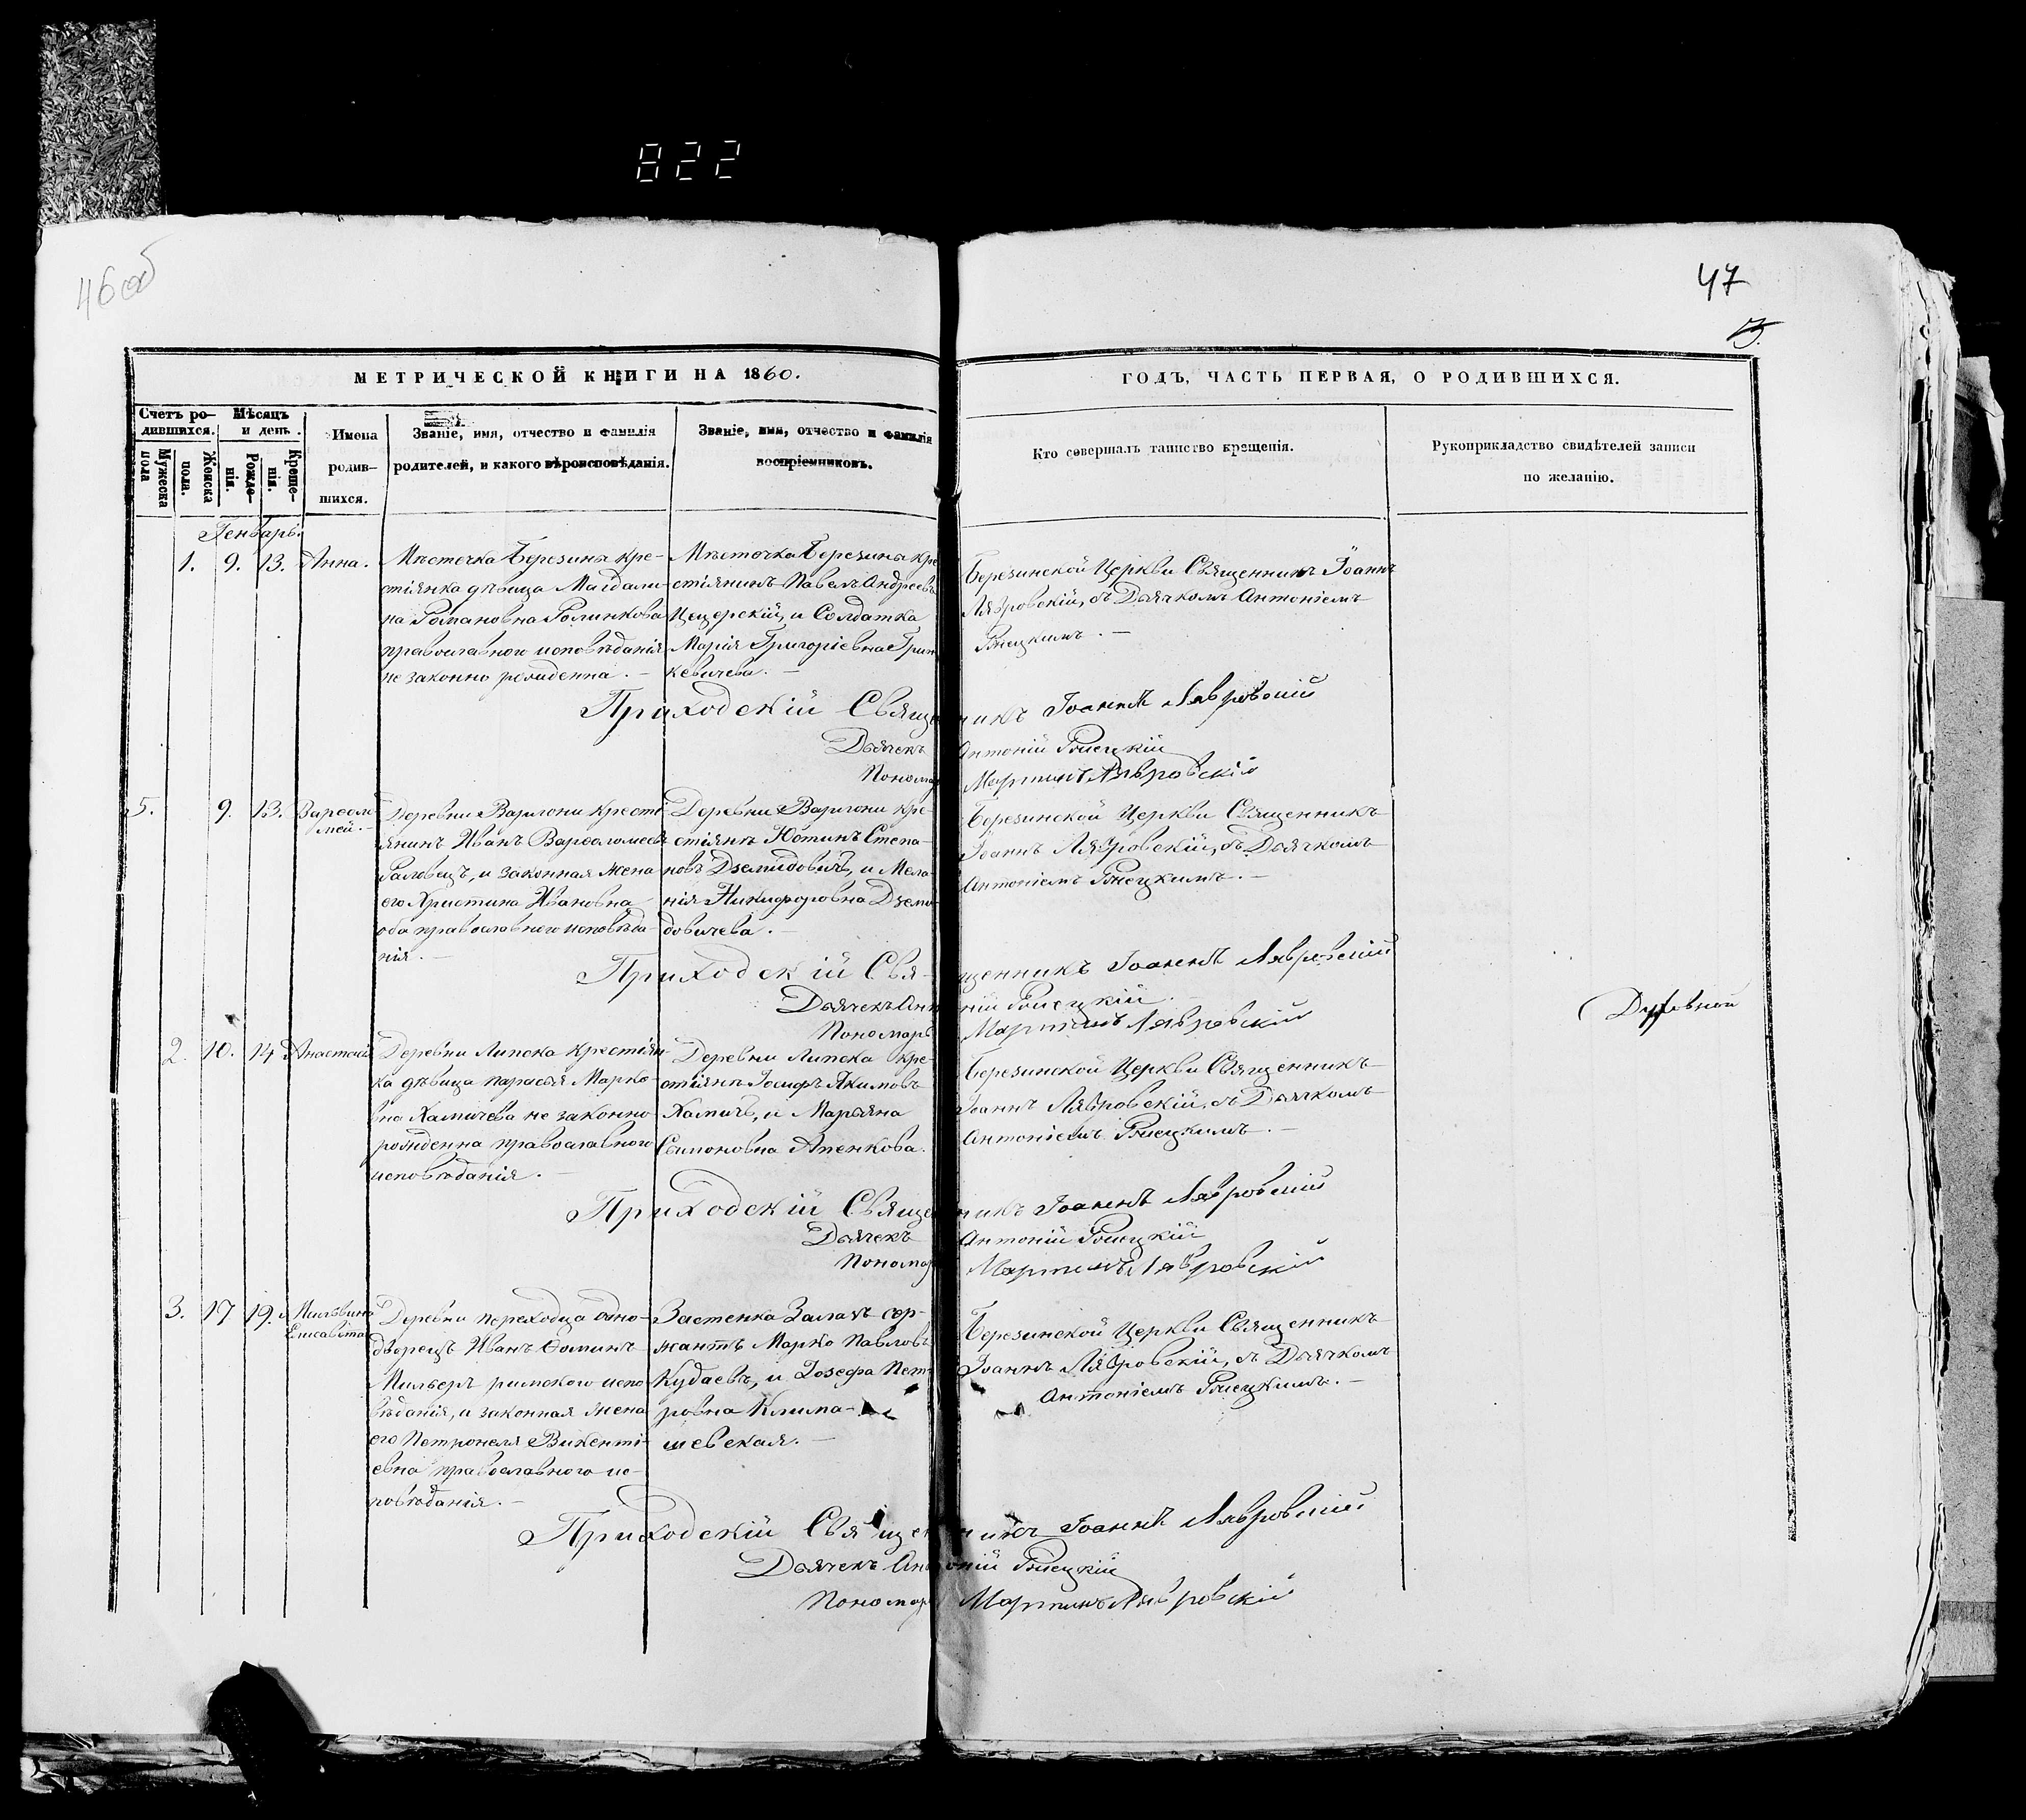 822
46 об
47
МЕТРИЧЕСКОЙ КНИГИ НА 1860.
ГОДЪ, ЧАСТЬ ПЕРВАЯ, О РОДИВШИХСЯ.
Счетъ ро-
дившихся.
Мѣсяцъ
и день.
Мужеска
пола
Женска
пола.
Рожде-
нія.
Креще-
нія.
Имена
родив-
шихся.
Званіе, имя, отчество и фамилія
родителей, и какого вѣроисповѣданія.
Званіе, имя, отчество и фамилія
воспріемниковъ.
Кто совершалъ таинство крещенія.
Рукоприкладство свидѣтелей записи
по желанію.
Генварь.
1. 9. 13. Анна.
Мѣстечка Березины кре-
стіянка дѣвица Магдали-
на Романовна
православного исповѣданія
не законно рожденна. —
Мѣсточка Березины кре
стіянинъ Павелъ Андреевъ
Цецерскій, и Солдатка
Марія Григоріевна Грин
кевичева. —
Березинской Церкви Священникъ Іоаннъ
Лявровскій, съ Дьячкомъ Антоніемъ
Приходскій Священникъ Іоаннъ Лявровскій
Дьячекъ Антоній
Пономарь Мартинъ Лявровскій
5. 9. 13. Варѳоло
мей. —
Деревни кресті
янинъ Иванъ Варѳоломеевъ
и законная жена
его Христина Ивановна
оба православного исповѣда-
нія. —
Деревни кре-
стіянъ Юстинъ Степа-
новъ Дземидовичъ, и Мела
нія Никифоровна Дземи-
довичева. —
Березинской Церкви Священникъ
Іоаннъ Лявровскій, съ Дьячкомъ
Антоніемъ
Приходскій Священникъ Іоаннъ Лявровскій
Дьячекъ Антоній
Пономарь Мартинъ Лявровскій
2. 10. 14 Анастасія
Деревни Липска крестіян-
ка дѣвица Парасья Марко-
вна Хамичева не законно
рожденна православного
исповѣданія. —
Деревни Липска кре-
стіянъ Іосифъ Якимовъ
Хамичъ, и Марьяна
Симоновна Апенкова.
Березинской Церкви Священникъ
Іоаннъ Лявровскій, съ Дьячкомъ
Антоніемъ
Приходскій Священникъ Іоаннъ Лявровскій
Дьячекъ Антоній
Пономарь Мартинъ Лявровскій
3. 17 19. Мильвина
Елисавета
Деревни Переходца одно-
дворецъ Иванъ Ѳоминъ
Мильверъ римского испо
вѣданія, и законная жена
его Петронеля Викенті-
евна православного ис-
повѣданія. —
Застенка сер-
жантъ Марко Павловъ
Кудаевъ, и Іозефа Пет-
ровна Клима-
шевская. —
Березинской Церкви Священникъ
Іоаннъ Лявровскій, съ Дьячкомъ
Антоніемъ
Приходскій Священникъ Іоаннъ Лявровскій
Дьячекъ Антоній
Пономарь Мартинъ Лявровскій